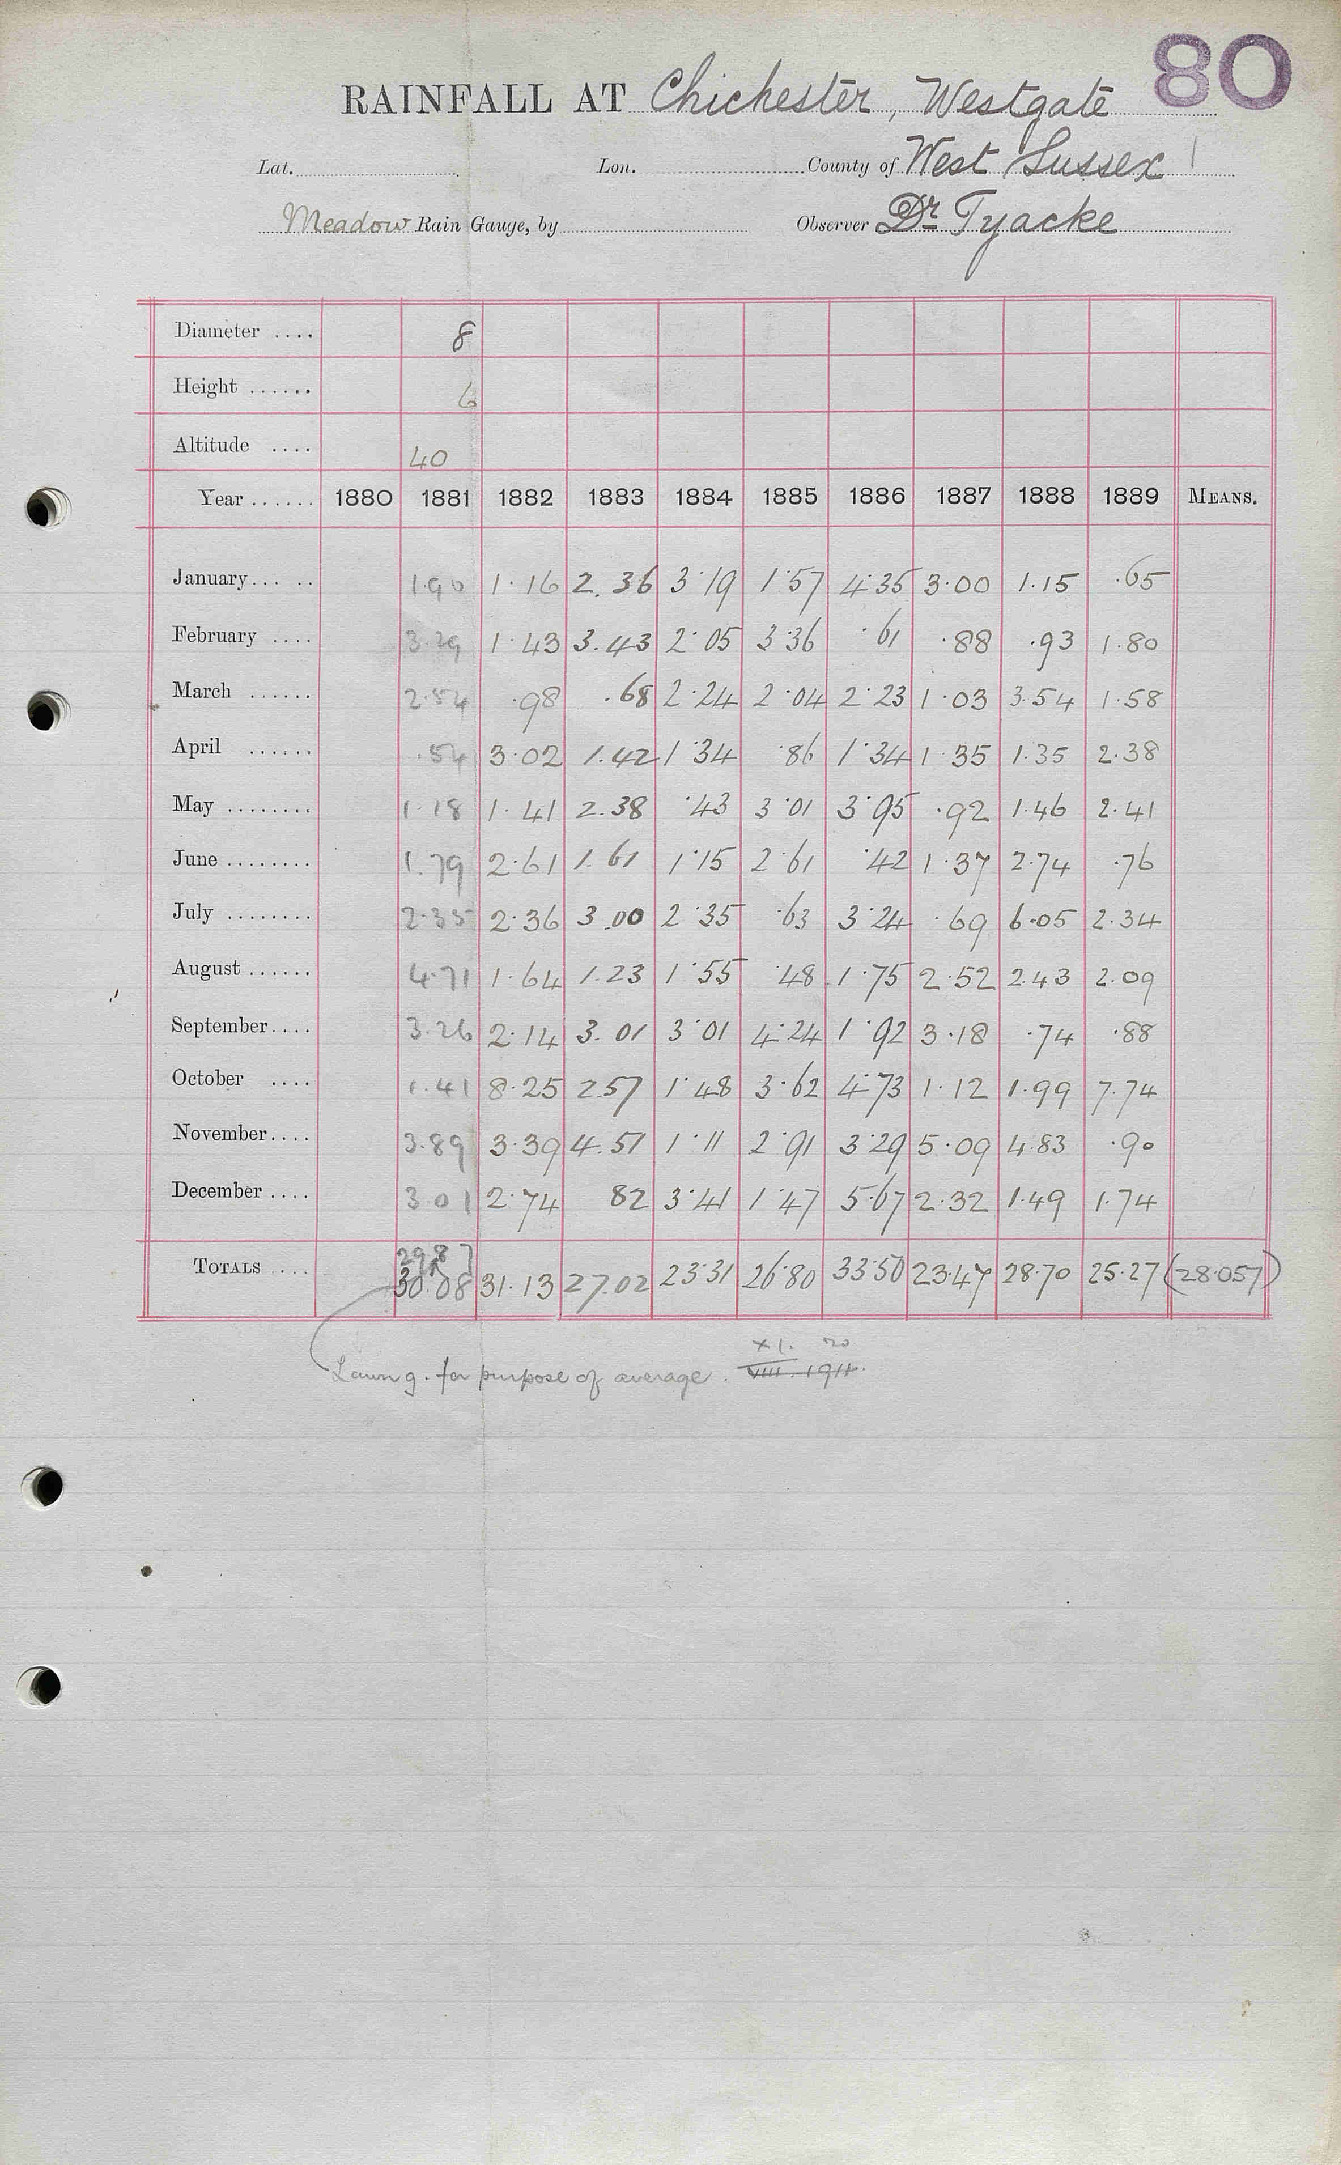 80
RAINFALL AT Chichester, Westgate
Lat. Lon. County of West Sussex
Meadow Rain Gauge, by Observer Dr Tyacke
Diameter .... 8
Height ...... 6
Altitude .... 40
Year ...... 1880 1881 1882 1883 1884 1885 1886 1887 1888 1889 MEANS.
January... .. 1.90 1.16 2.36 3.19 1.57 4.35 3.00 1.15 .65
February .... 3.29 1.43 3.43 2.05 3.36 .61 .88 .93 1.80
March ...... 2.54 .98 .68 2.24 2.04 2.23 1.03 3.54 1.58
April ...... .54 3.02 1.42 1.34 .86 1.34 1.35 1.35 2.38
May ........ 1.18 1.41 2.38 .43 3.01 3.95 .92 1.46 2.41
June ........ 1.79 2.61 1.61 1.15 2.61 .42 1.37 2.74 .76
July ........ 2.35 2.36 3.00 2.35 .63 3.24 .69 6.05 2.34
August ...... 4.71 1.64 1.23 1.55 .48 1.75 2.52 2.43 2.09
September.... 3.26 2.14 3.01 3.01 4.24 1.92 3.18 .74 .88
October .... 1.41 8.25 2.57 1.48 3.62 4.73 1.12 1.99 7.74
November.... 3.89 3.39 4.51 1.11 2.91 3.29 5.09 4.83 .90
December .... 3.01 2.74 82 3.41 1.47 5.67 2.32 1.49 1.74
TOTALS .... 30.08 31.13 27.02 23.31 26.80 33.50 23.47 28.70 25.27 (28.057)
XI. 20
Lawn g. for purpose of average. VIII. 1911.